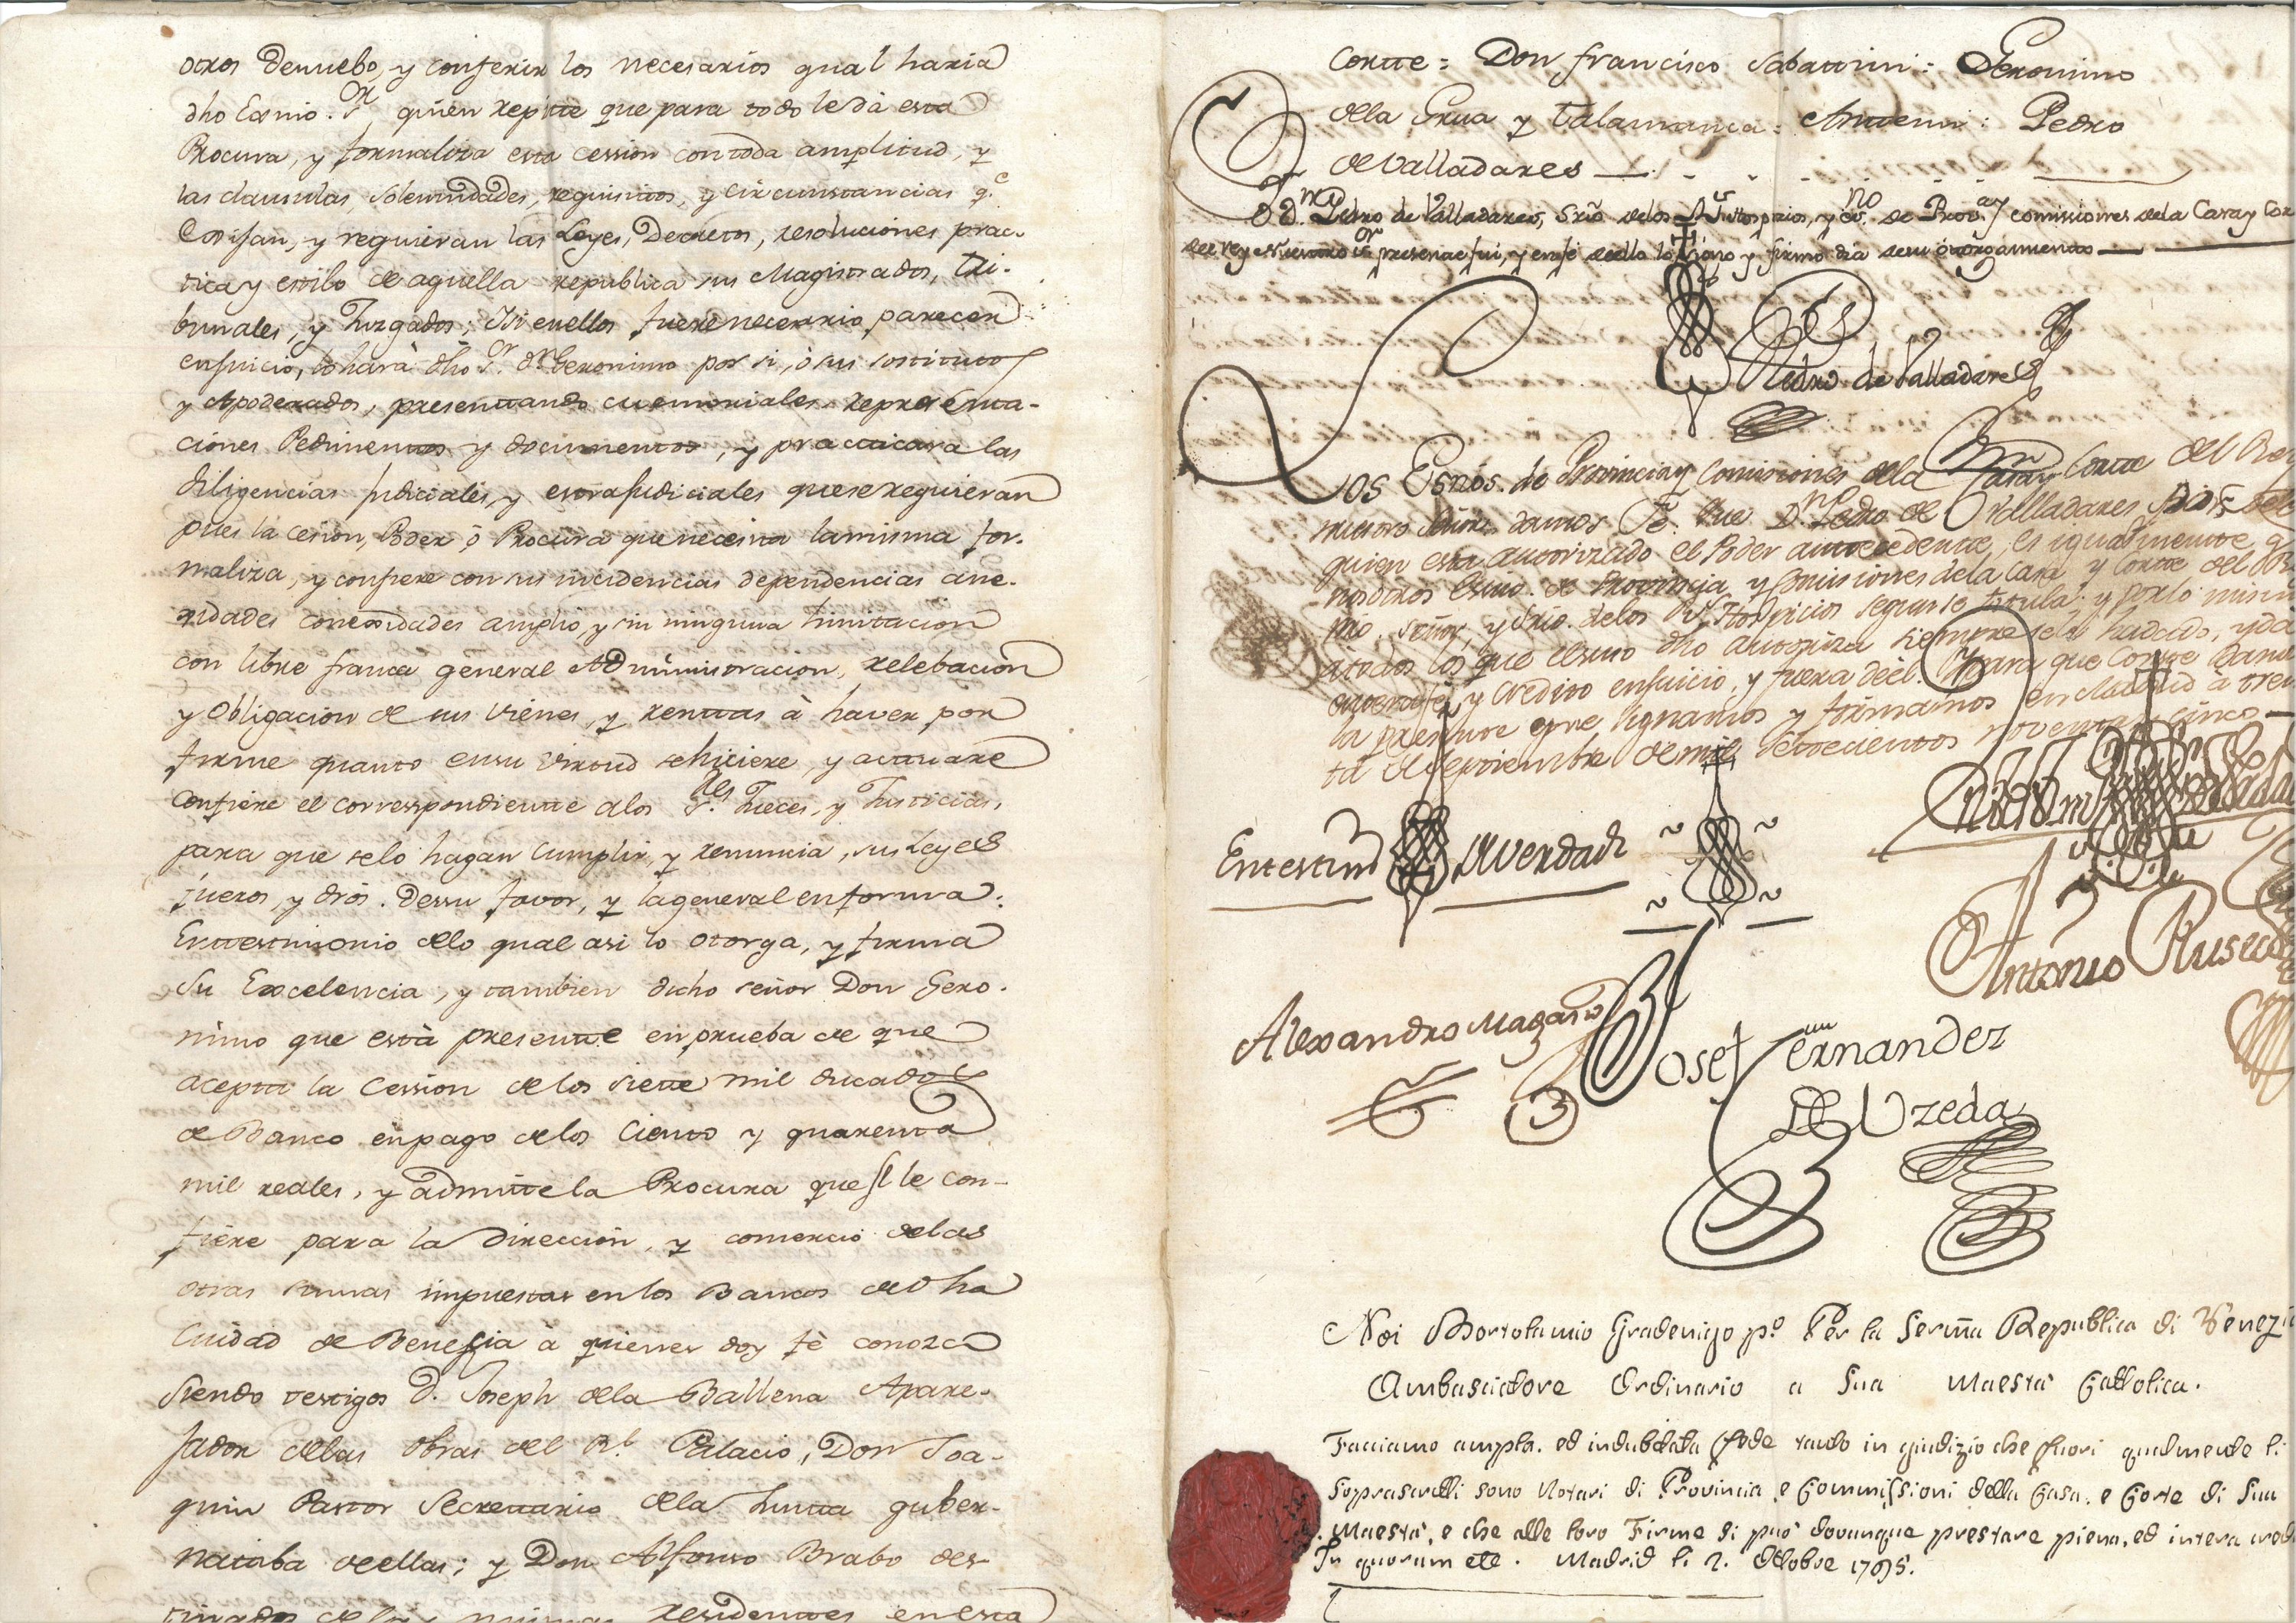 otros denuebo, y conferir los necesarios qual haria
dho Exmo. Sr. quien repitte que para todo le dà esta
Procura, y formaliza esta cession contoda amplitud, y
las clausulas, solemnidades, requisitos, y circunstancias q.e
Corisan, y requieran las Leyes, Decretos, resoluciones prac-
tica y estilo de aquella republica sus Magistrados, Tri-
bunales, y Juzgados; Y si enellos fuere necesario parecer
enjuicio, lo harà dho Sr. Dn Geronimo por si, ò sus sostitutos
y Apoderados, presenttando memoriales. representa-
ciones Pedimentos y documentos, y practticara las
diligencias judiciales, y estrajudiciales que se requieran
pues la cesion, Poder, ò Procura que necesita la misma for-
maliza, y confiere con sus incidencias dependencias ane-
xidades conexidades amplio, y sin ninguna limitacion
con libre franca general Administracion, relebacion
y obligacion de sus vienes, y renttas à haver por
firme quanto ensu virtud se hiciere, y actuare
Confiere el correspondiente alos S.res Jueces, y Justicias,
para que selo hagan cumplir, y renuncia, sus Leyes
fueros, y dròs. Dessu favor, y lageneral enforma:
Enttestimonio delo qual asi lo otorga, y firma
Su Excelencia, y tambien dicho señor Don Gero-
nimo que està presentte en prueba de que
acepta la Cession delos siette mil ducados
de Banco enpago delos Ciento y quarenta
mil reales, y admitte la Procura que se le con-
fiere para la Direccion, y comercio delas
otras sumas impuestas enlos Bancos de dha
Ciudad de Benecia à quienes doy fè conozco
Siendo testigos D. Joseph dela Ballena Apare-
jador delas obras del Rl. Palacio, Don Joa-
quin Pastor Secrettario dela Juntta guber-
nataba deellas; y Don Alfonso Brabo des-
tinados dela misma residentes en esta
Cortte = Don Francisco Sabattini = Geronimo
dela Grua y Talamanca = Anttemi: Pedro
de Valladares
Yo Dn. Pedro de Valladares, Srio delos Rs. Hospicios, y Esno. de Prova. y comisiones dela Casa y Cor
del rey Nuestro Sor. presente fui, y enfè deello lo signo y firmo dia desu otorgamiento
Pedro de Valladares
Los Esnos. de Provincia y Comisiones dela Casa y Cortte del Rey
nuestro Señor damos Fè: Que Dn. Pedro de Valladares por
quien està autorizado el Poder antecedente, es igualmente q
nosotros Esno. de Provincia y Comisiones dela Casa y Cortte del
mo. señor, y Srio. delos Rs. Hospicios segun se titula; y porlo mism
atodos los que desuio dho autoriza siempre seles ha dado, y da
entera fè y Credito enjuicio, y fuera deèl. Y para que Conste Damos
la presente que signamos y firmamos en Madrid à trein
ta de Septiembre de mil settecientos noventa y cinco
Entestimo de Verdad
Alexandro Magariño
Antonio Ruseco
Josef Fernandez
De Uzeda
Noi Bortolamio Gradenigo p.o Per la Serma Republica di Venezia
Ambasciatore Ordinario a Sua Maestà Cattolica.
Facciamo ampla. ed indubitata fede tanto in giudizio che fuori qualmente li
soprascritti sono Notari di Provincia e Commissioni della Casa, e Corte di Sua
Maestà, e che alle loro Firme si può dovunque prestare piena, ed intera cred
In quorum etc. Madrid li 2. Ottobre 1795.